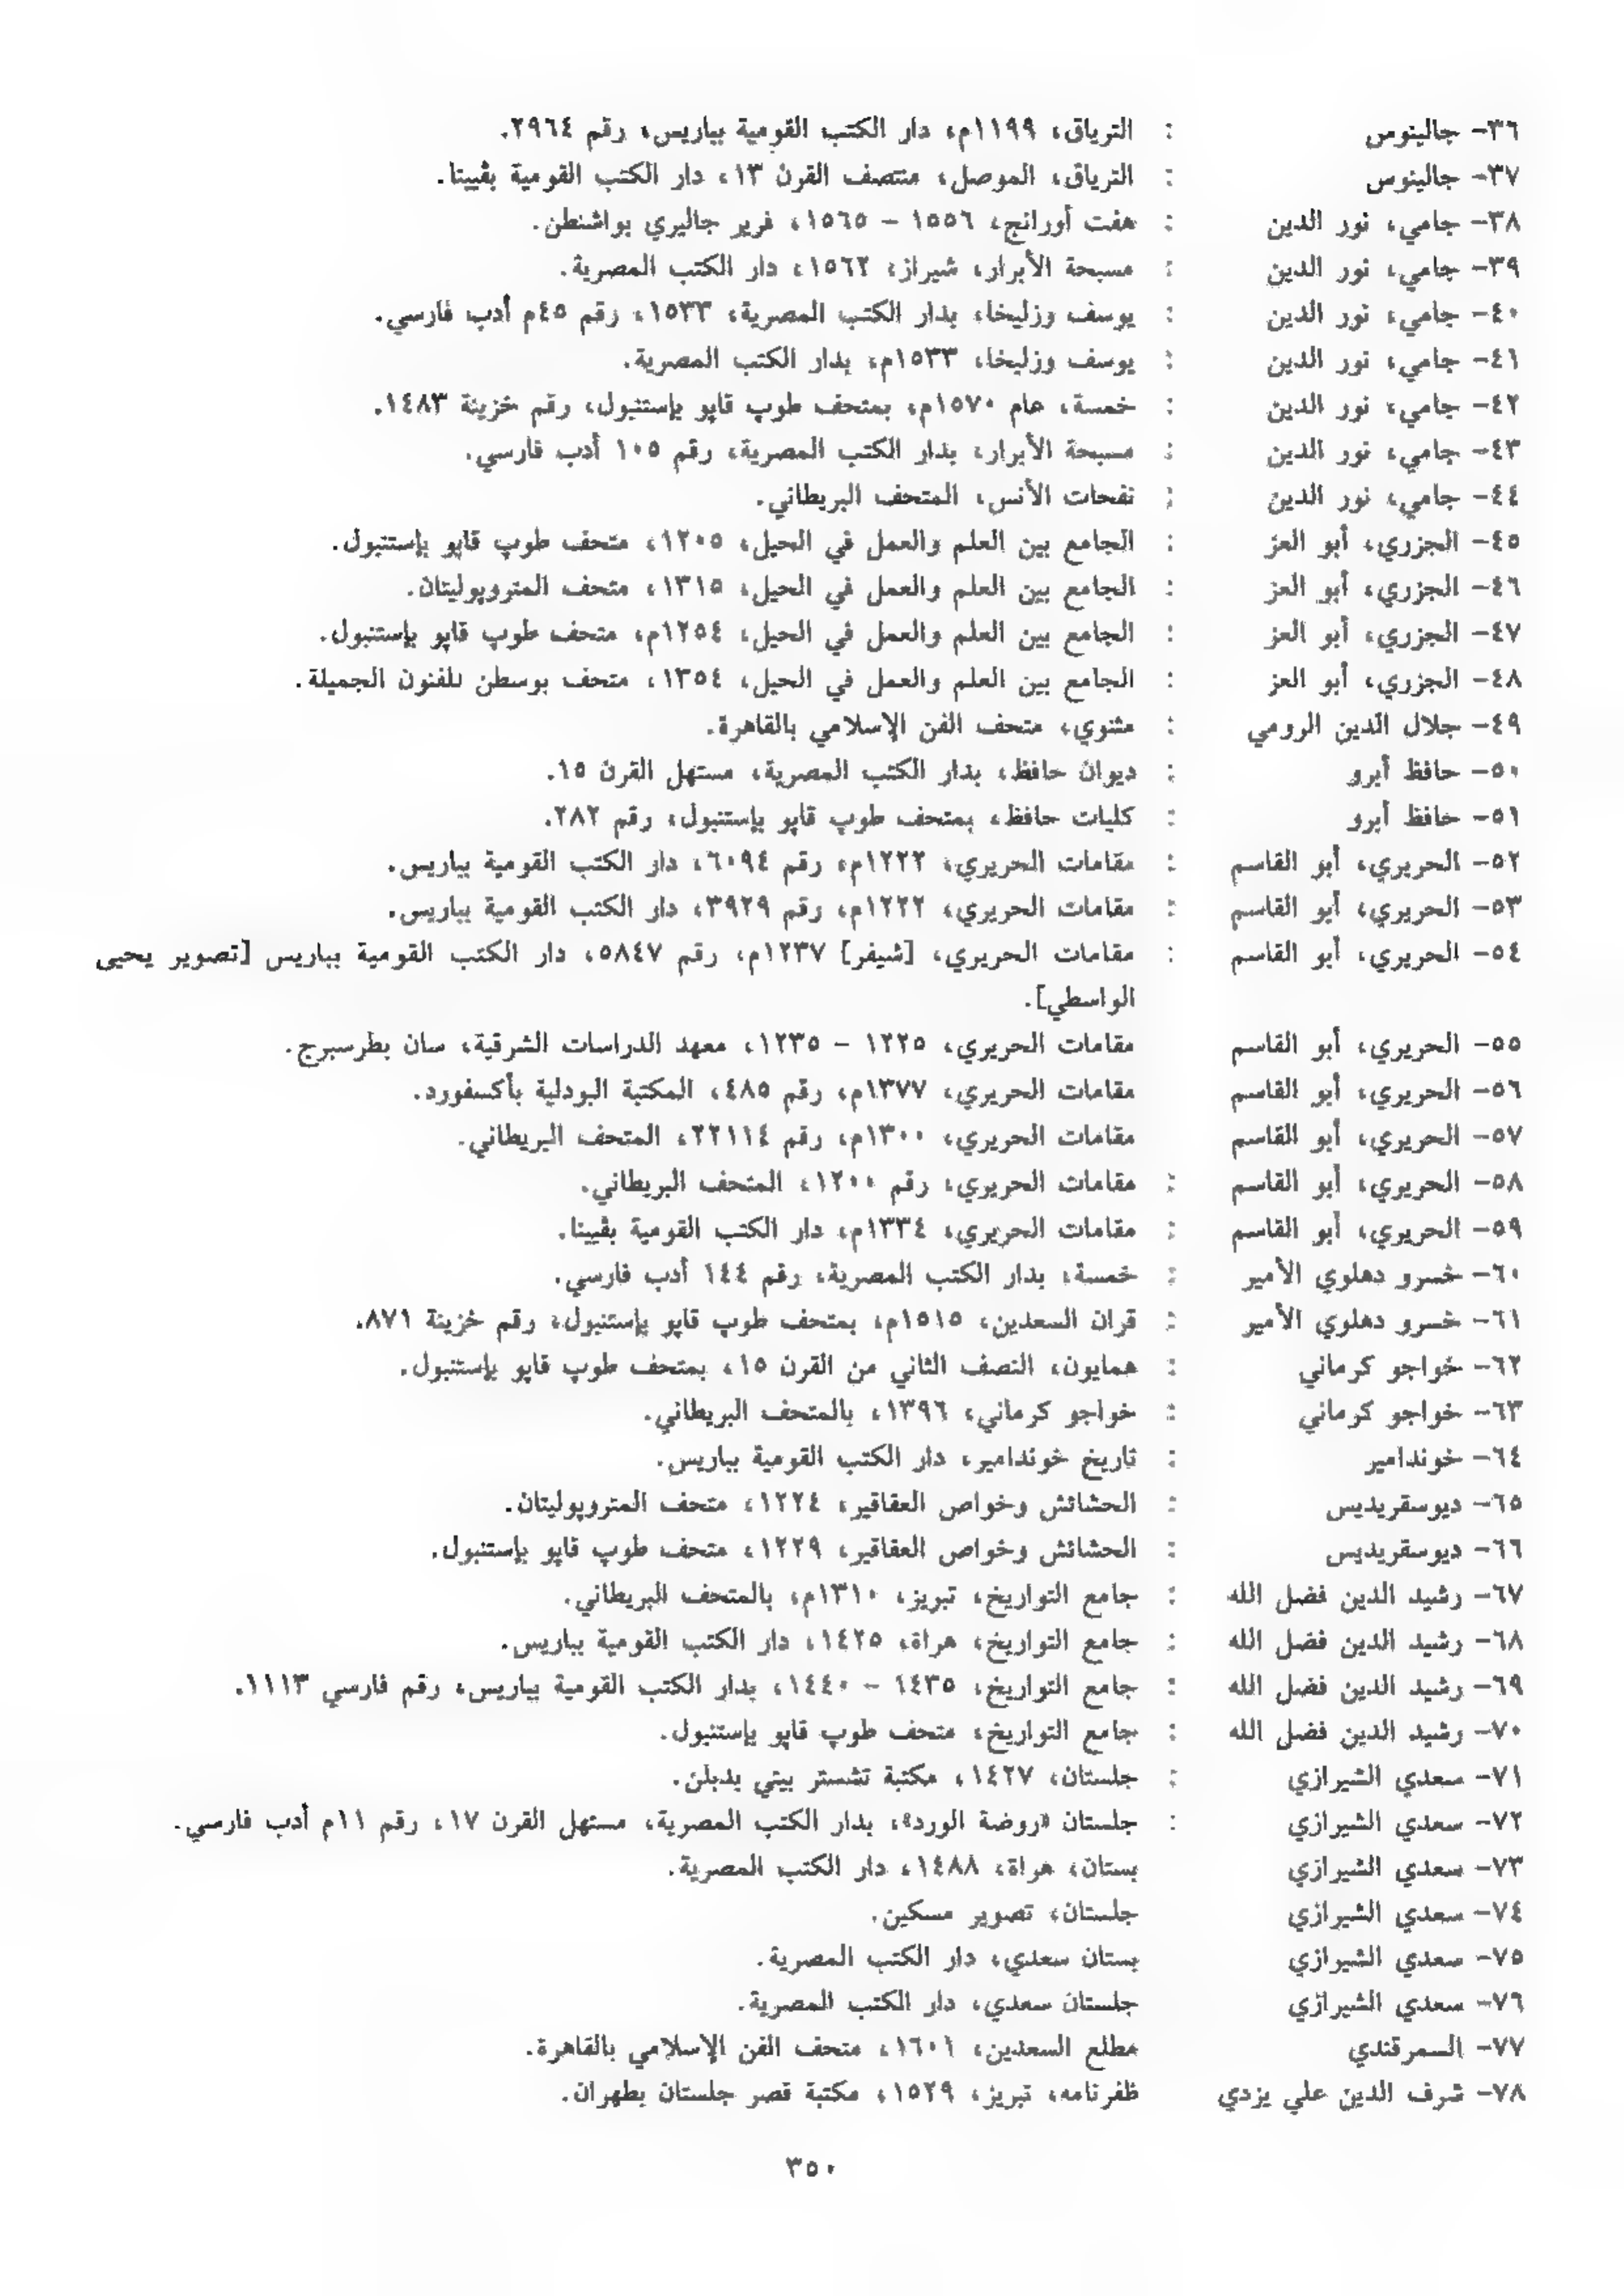 ٣٦- جالينوس : الترياق، ١١٩٩م، دار الكتب القومية بباريس، رقم ٢٩٦٤.
٣٧- جالينوس : الترياق، الموصل، منتصف القرن ١٣، دار الكتب القومية بڤيينا.
٣٨- جامي، نور الدين : هفت أورانج، ١٥٥٦ – ١٥٦٥، فرير جاليري بواشنطن.
٣٩- جامي، نور الدين : مسبحة الأبرار، شيراز، ١٥٦٢، دار الكتب المصرية.
٤٠- جامي، نور الدين : يوسف وزليخا، بدار الكتب المصرية، ١٥٣٣، رقم ٤٥م أدب فارسي.
٤١- جامي، نور الدين : يوسف وزليخا، ١٥٣٣م، بدار الكتب المصرية.
٤٢- جامي، نور الدين : خمسة، عام ١٥٧٠م، بمتحف طوپ قاپو بإستنبول، رقم خزينة ١٤٨٣.
٤٣- جامي، نور الدين : مسبحة الأبرار، بدار الكتب المصرية، رقم ١٠٥ أدب فارسي.
٤٤- جامي، نور الدين : نفحات الأنس، المتحف البريطاني.
٤٥- الجزري، أبو العز : الجامع بين العلم والعمل في الحيل، ١٢٠٥، متحف طوپ قاپو بإستنبول.
٤٦- الجزري، أبو العز : الجامع بين العلم والعمل في الحيل، ١٣١٥، متحف المتروپوليتان.
٤٧- الجزري، أبو العز : الجامع بين العلم والعمل في الحيل، ١٢٥٤م، متحف طوپ قاپو بإستنبول.
٤٨- الجزري، أبو العز : الجامع بين العلم والعمل في الحيل، ١٣٥٤، متحف بوسطن للفنون الجميلة.
٤٩- جلال الدين الرومي : مثنوي، متحف الفن الإسلامي بالقاهرة.
٥٠- حافظ أبرو : ديوان حافظ، بدار الكتب المصرية، مستهل القرن ١٥.
٥١- حافظ أبرو : كليات حافظ، بمتحف طوپ قاپو بإستنبول، رقم ٢٨٢.
٥٢- الحريري، أبو القاسم : مقامات الحريري، ١٢٢٢م، رقم ٦٠٩٤، دار الكتب القومية بباريس.
٥٣- الحريري، أبو القاسم : مقامات الحريري، ١٢٢٢م، رقم ٣٩٢٩، دار الكتب القومية بباريس.
٥٤- الحريري، أبو القاسم : مقامات الحريري، [شيفر] ١٢٣٧م، رقم ٥٨٤٧، دار الكتب القومية بباريس [تصوير يحيى
الواسطي].
٥٥- الحريري، أبو القاسم مقامات الحريري، ١٢٢٥ – ١٢٣٥، معهد الدراسات الشرقية، سان بطرسبرج.
٥٦- الحريري، أبو القاسم مقامات الحريري، ١٣٧٧م، رقم ٤٨٥، المكتبة البودلية بأكسفورد.
٥٧- الحريري، أبو القاسم مقامات الحريري، ١٣٠٠م، رقم ٢٢١١٤، المتحف البريطاني.
٥٨- الحريري، أبو القاسم : مقامات الحريري، رقم ١٢٠٠، المتحف البريطاني.
٥٩- الحريري، أبو القاسم : مقامات الحريري، ١٣٣٤م، دار الكتب القومية بڤيينا.
٦٠- خسرو دهلوي الأمير : خمسة، بدار الكتب المصرية، رقم ١٤٤ أدب فارسي.
٦١- خسرو دهلوي الأمير : قران السعدين، ١٥١٥م، بمتحف طوپ قاپو بإستنبول، رقم خزينة ٨٧١.
٦٢- خواجو كرماني : همايون، النصف الثاني من القرن ١٥، بمتحف طوپ قاپو بإستنبول.
٦٣- خواجو كرماني : خواجو كرماني، ١٣٩٦، بالمتحف البريطاني.
٦٤- خوندامير : تاريخ خوندامير، دار الكتب القومية بباريس.
٦٥- ديوسقريديس : الحشائش وخواص العقاقير، ١٢٢٤، متحف المتروپوليتان.
٦٦- ديوسقريديس : الحشائش وخواص العقاقير، ١٢٢٩، متحف طوپ قاپو بإستنبول.
٦٧- رشيد الدين فضل الله : جامع التواريخ، تبريز، ١٣١٠م، بالمتحف البريطاني.
٦٨- رشيد الدين فضل الله : جامع التواريخ، هراة، ١٤٢٥، دار الكتب القومية بباريس.
٦٩- رشيد الدين فضل الله : جامع التواريخ، ١٤٣٥ – ١٤٤٠، بدار الكتب القومية بباريس، رقم فارسي ١١١٣.
٧٠- رشيد الدين فضل الله : جامع التواريخ، متحف طوپ قاپو بإستنبول.
٧١- سعدي الشيرازي : جلستان، ١٤٢٧، مكتبة تشستر بيتي بدبلن.
٧٢- سعدي الشيرازي : جلستان «روضة الورد»، بدار الكتب المصرية، مستهل القرن ١٧، رقم ١١م أدب فارسي.
٧٣- سعدي الشيرازي بستان، هراة، ١٤٨٨، دار الكتب المصرية.
٧٤- سعدي الشيرازي جلستان، تصوير مسكين.
٧٥- سعدي الشيرازي بستان سعدي، دار الكتب المصرية.
٧٦- سعدي الشيرازي جلستان سعدي، دار الكتب المصرية.
٧٧- السمرقندي مطلع السعدين، ١٦٠١، متحف الفن الإسلامي بالقاهرة.
٧٨- شرف الدين علي يزدي ظفرنامه، تبريز، ١٥٢٩، مكتبة قصر جلستان بطهران.
٣٥٠